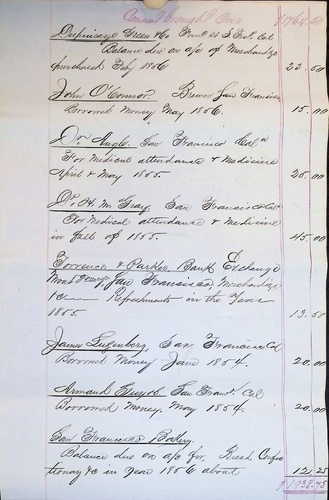 Amount brought Over $1764.50
Green & Co Front St S. Fco. Cal
Balance due on a/c of Merchandize
purchased July 1856 23.50
John O'Connor. Brewer San Francisco
Borrowed Money May 1856. 15.00
Dr. Angle. San Francisco Cal
For Medical attendance & Medicine
April & May 1855. 25.00
Dr. H. M. Gray, San Francisco Cal
For Medical attendance & Medicine
in fall of 1855. 45.00
Torrence & Parker, Bank Exchange
Montgomery, San Francisco
&c Refreshments in the Year
1855. 13.50
James San Francisco Cal
Borrowed Money June 1854. 20.00
Armand San Franco. Cal
Borrowed Money, May 1854. 20.00
San Francisco Bakery.
Balance due on a/c for Confec
tionary &c in Year 1856 about 12.25
$1938.75